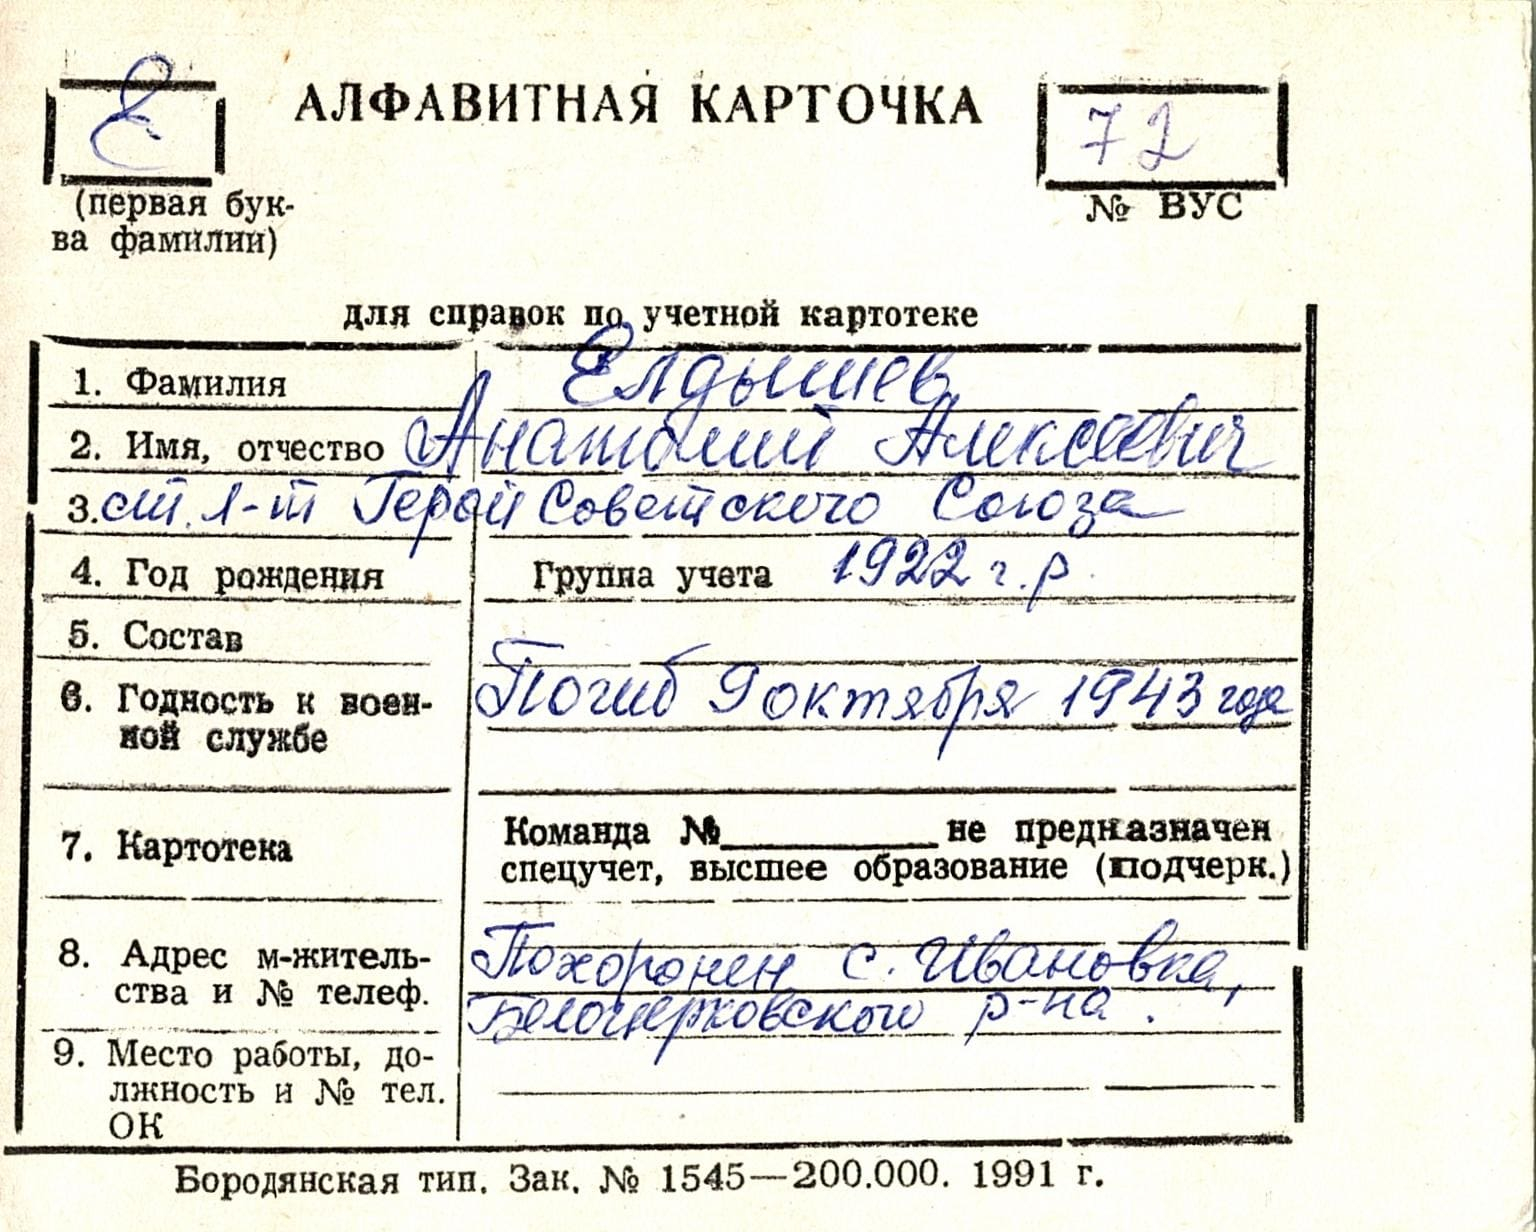 Е
АЛФАВИТНАЯ КАРТОЧКА
72
(первая бук-
ва фамилии)
№ ВУС
для справок по учетной картотеке
1. Фамилия Елдышев
2. Имя, отчество Анатолий Алексеевич
3. ст. л-т Герой Советского Союза
4. Год рождения Группа учета 1922 г.р.
5. Состав
6. Годность к воен-
ной службе
Погиб 9 октября 1943 года
7. Картотека
Команда №__________ не предназначен
спецучет, высшее образование (подчерк.)
8. Адрес м-житель-
ства и № телеф.
Похоронен с. Ивановка,
Белоцерковского р-на.
9. Место работы, до-
лжность и № тел.
ОК
Бородянская тип. Зак. № 1545—200.000. 1991 г.